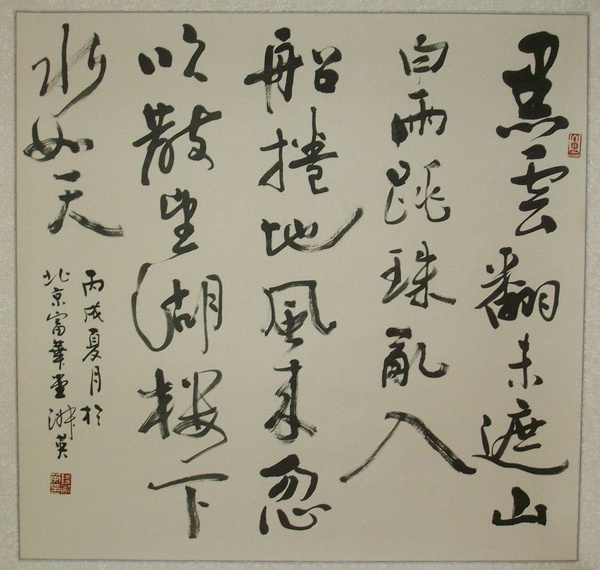 黑雲翻未遮山
白雨跳珠亂入
船捲地風來忽
吹散望湖楼下
水如天
丙戌夏月於
北京富華堂英